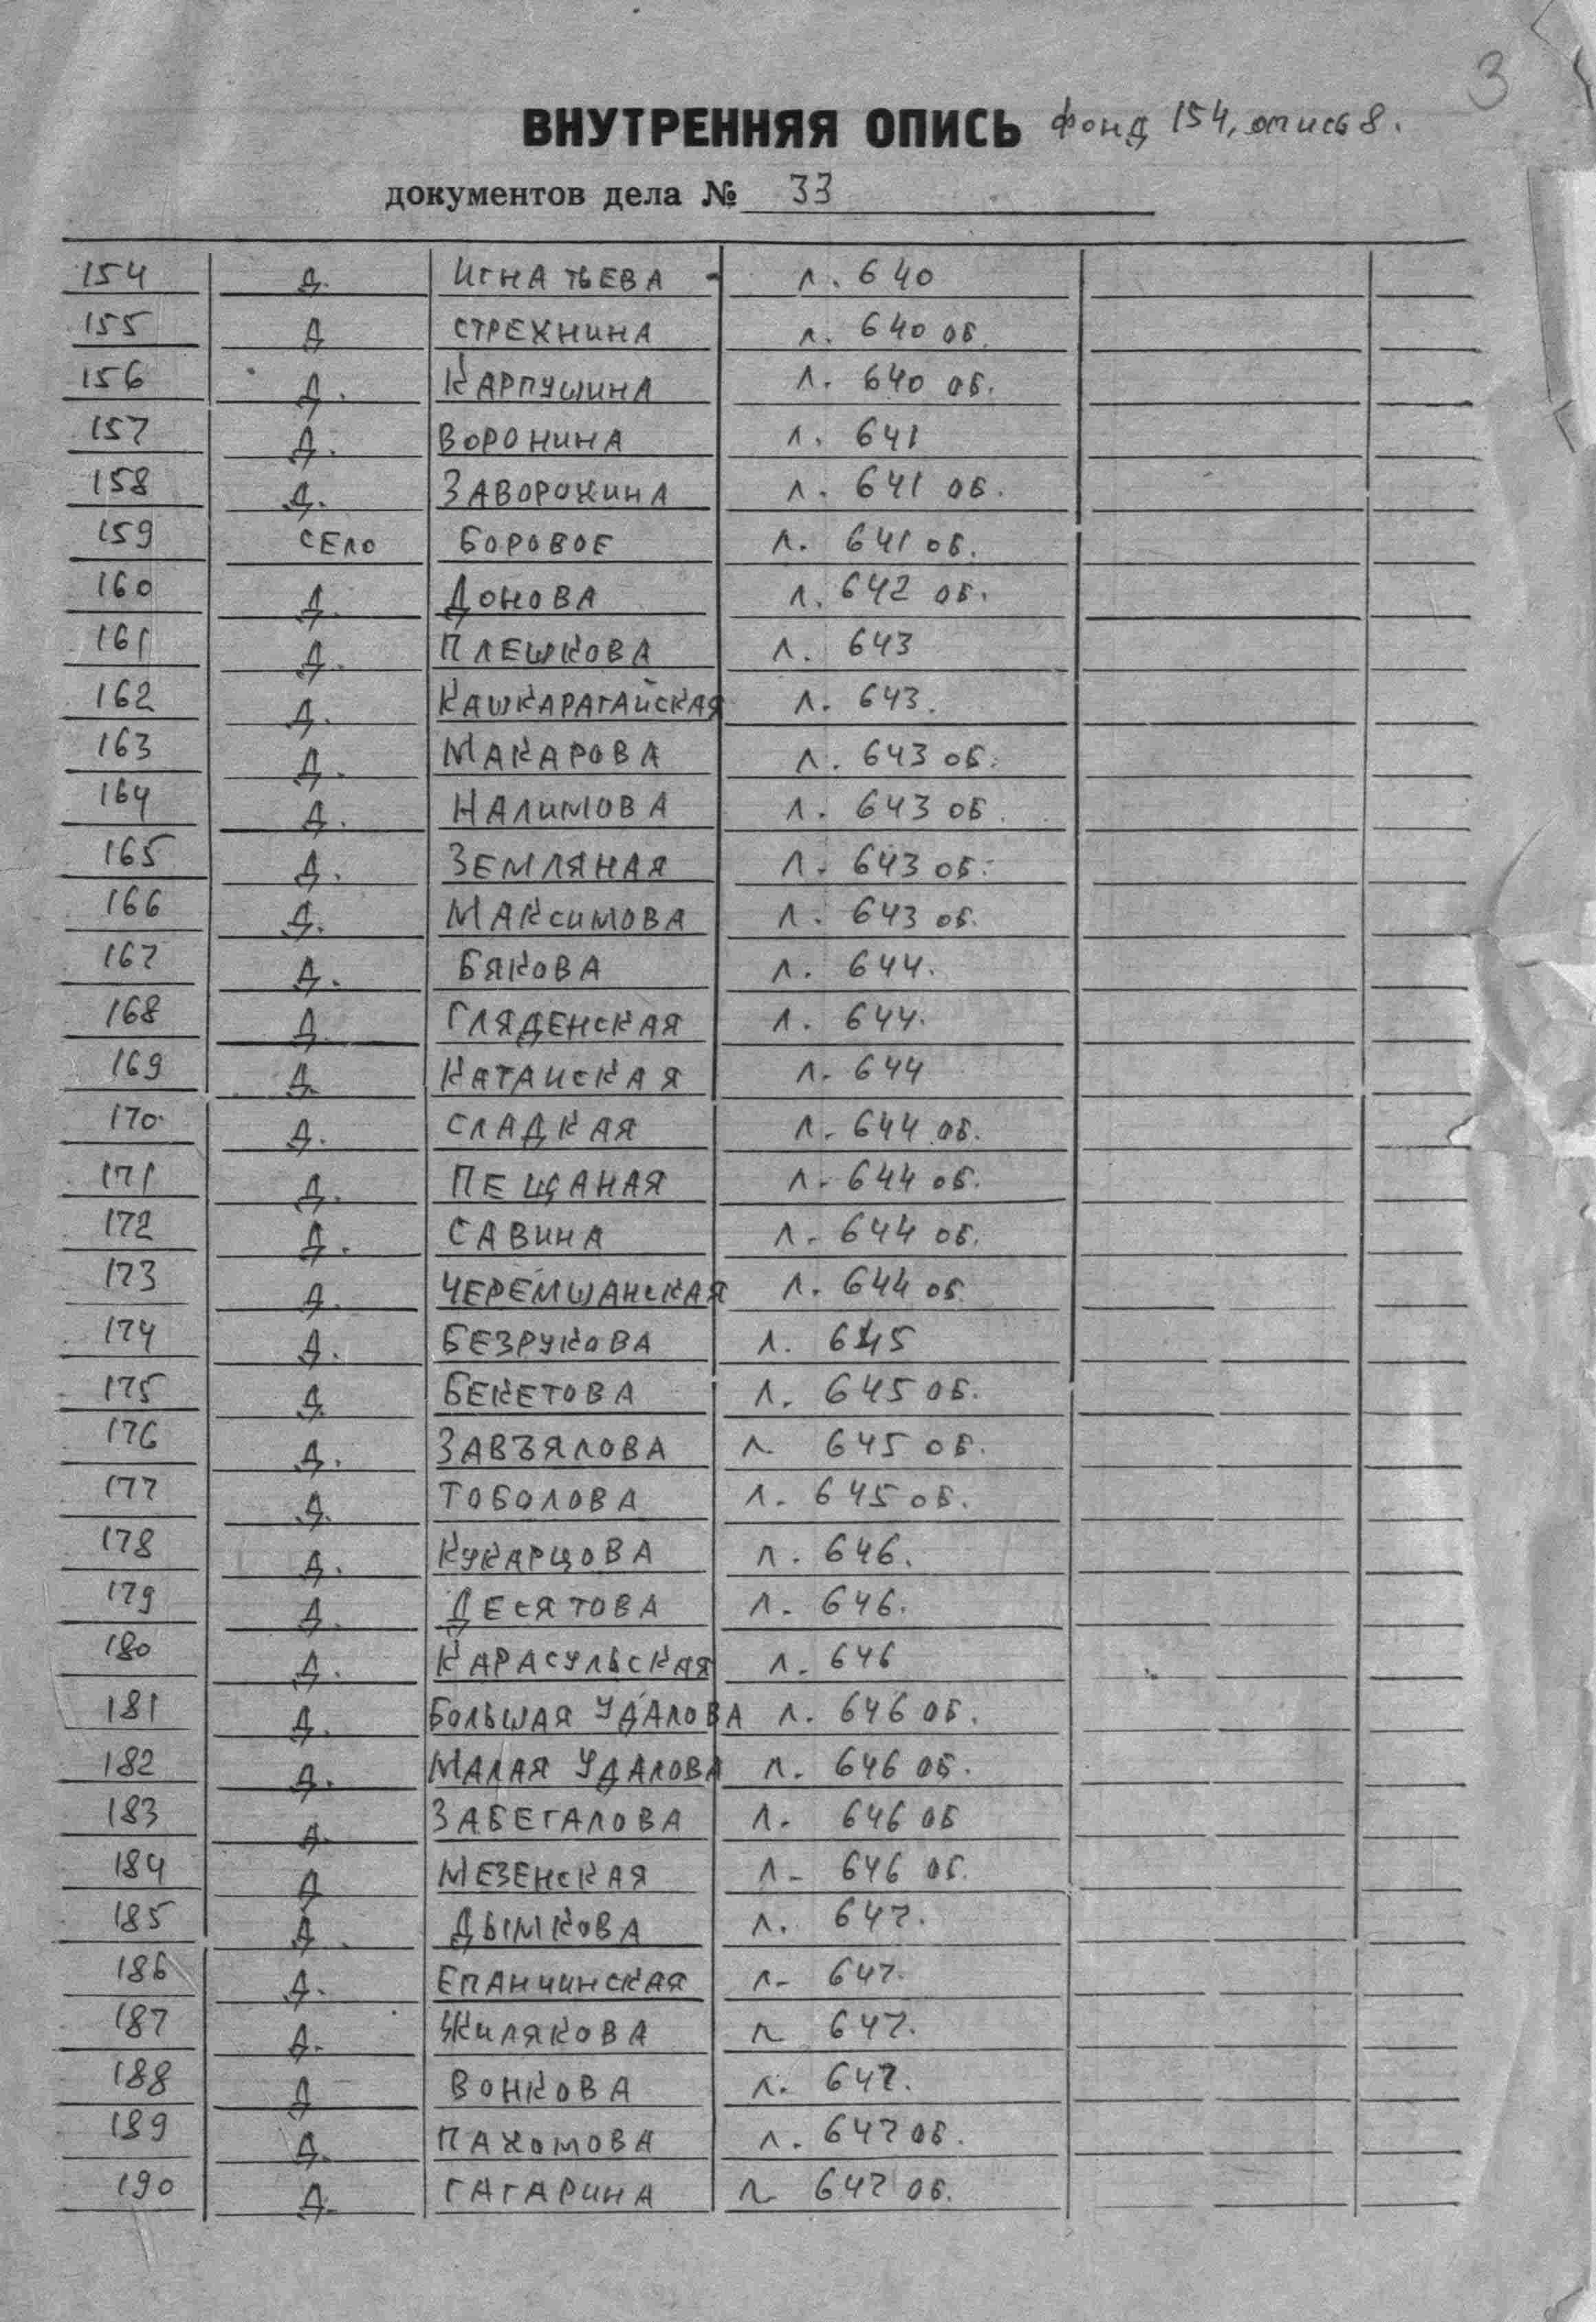 3
ВНУТРЕННЯЯ ОПИСЬ фонд 154, опись 8.
документов дела № 33
154 Д. ИГНАТЬЕВА л. 640
155 Д СТРЕХНИНА л. 640 об.
156 Д. КАРПУШИНА л. 640 об.
157 Д. ВОРОНИНА л. 641
158 Д. ЗАВОРОХИНА л. 641 об.
159 СЕЛО БОРОВОЕ л. 641 об.
160 Д. ДОНОВА л. 642 об.
161 Д. ПЛЕШКОВА л. 643
162 Д. КАШКАРАГАЙСКАЯ л. 643.
163 Д. МАКАРОВА л. 643 об.
164 Д. НАЛИМОВА л. 643 об.
165 Д. ЗЕМЛЯНАЯ л. 643 об.
166 Д. МАКСИМОВА л. 643 об.
167 Д. БЯКОВА л. 644.
168 Д. ГЛЯДЕНСКАЯ л. 644.
169 Д. КАТАИСКАЯ л. 644
170 Д. СЛАДКАЯ л. 644 об.
171 Д. ПЕЩАНАЯ л. 644 об.
172 Д. САВИНА л. 644 об.
173 Д. ЧЕРЕМШАНСКАЯ л. 644 об
174 Д. БЕЗРУКОВА л. 645
175 Д. БЕКЕТОВА л. 645 об.
176 Д. ЗАВЪЯЛОВА л 645 об.
177 Д. ТОБОЛОВА л. 645 об.
178 Д. КУКАРЦОВА л. 646.
179 Д. ДЕСЯТОВА л. 646.
180 Д. КАРАСУЛЬСКАЯ л. 646
181 Д. БОЛЬШАЯ УДАЛОВА л. 646 об.
182 Д. МАЛАЯ УДАЛОВА л. 646 об.
183 Д. ЗАБЕГАЛОВА л. 646 об
184 Д МЕЗЕНСКАЯ л. 646 об.
185 Д. ДЫМКОВА л. 647.
186 Д. ЕПАНЧИНСКАЯ л. 647.
187 Д. ЖИЛЯКОВА л 647.
188 Д ВОНКОВА л. 647.
189 Д. ПАХОМОВА л. 647 об.
190 Д. ГАГАРИНА л 647 об.